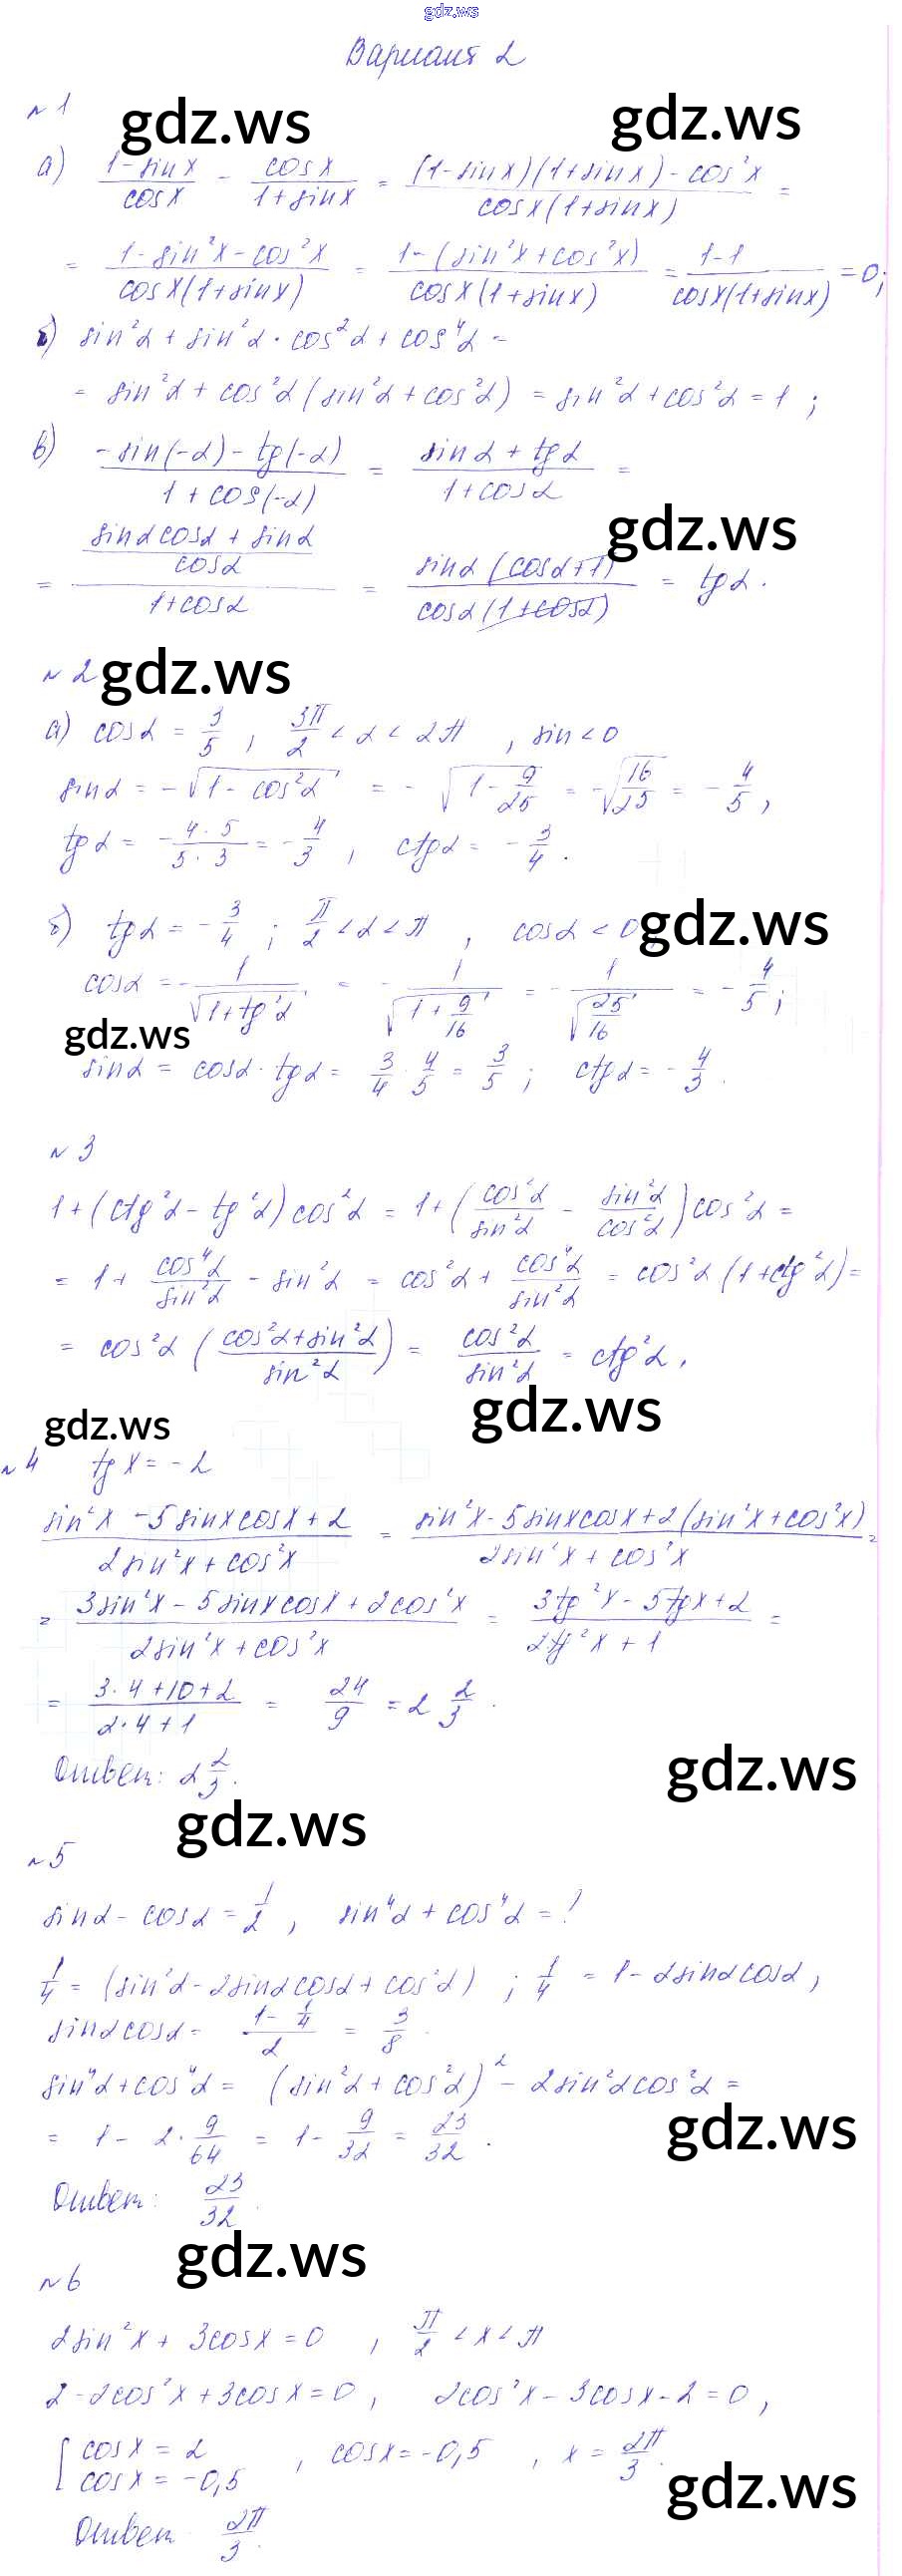 gdz.ws
Вариант 2
№1
gdz.ws gdz.ws
а) (1-sinx)/cosx - cosx/(1+sinx) = ((1-sinx)(1+sinx)-cos²x)/(cosx(1+sinx)) =
= (1-sin²x-cos²x)/(cosx(1+sinx)) = (1-(sin²x+cos²x))/(cosx(1+sinx)) = (1-1)/(cosx(1+sinx)) = 0;
б) sin²α + sin²α · cos²α + cos⁴α =
= sin²α + cos²α (sin²α + cos²α) = sin²α + cos²α = 1 ;
в) (-sin(-α) - tg(-α))/(1+cos(-α)) = (sinα + tgα)/(1+cosα) =
gdz.ws
= ((sinαcosα + sinα)/cosα)/(1+cosα) = (sinα(cosα+1))/(cosα(1+cosα)) = tgα.
№2
gdz.ws
а) cosα = 3/5 , 3π/2 < α < 2π , sin<0
sinα = -√(1-cos²α) = -√(1-9/25) = -√(16/25) = -4/5 ,
tgα = -(4·5)/(5·3) = -4/3 , ctgα = -3/4 .
б) tgα = -3/4 ; π/2 < α < π , cosα < 0
gdz.ws
cosα = -1/√(1+tg²α) = -1/√(1+9/16) = -1/√(25/16) = -4/5 ;
gdz.ws
sinα = cosα · tgα = 3/4 · 4/5 = 3/5 ; ctgα = -4/3 .
№3
1+(ctg²α - tg²α)cos²α = 1+(cos²α/sin²α - sin²α/cos²α)cos²α =
= 1+ cos⁴α/sin²α - sin²α = cos²α + cos⁴α/sin²α = cos²α(1+ctg²α) =
= cos²α ((cos²α+sin²α)/sin²α) = cos²α/sin²α = ctg²α .
gdz.ws gdz.ws
№4 tgx = -2
(sin²x - 5sinxcosx + 2)/(2sin²x + cos²x) = (sin²x - 5sinxcosx + 2(sin²x+cos²x))/(2sin²x + cos²x) =
= (3sin²x - 5sinxcosx + 2cos²x)/(2sin²x + cos²x) = (3tg²x - 5tgx + 2)/(2tg²x + 1) =
= (3·4+10+2)/(2·4+1) = 24/9 = 2 2/3 .
Ответ: 2 2/3 .
gdz.ws
gdz.ws
№5
sinα - cosα = 1/2 , sin⁴α + cos⁴α = ?
1/4 = (sin²α - 2sinαcosα + cos²α) ; 1/4 = 1 - 2sinαcosα ,
sinαcosα = (1-1/4)/2 = 3/8 .
sin⁴α + cos⁴α = (sin²α + cos²α)² - 2sin²αcos²α =
gdz.ws
= 1 - 2·9/64 = 1 - 9/32 = 23/32 .
Ответ: 23/32 .
gdz.ws
№6
2sin²x + 3cosx = 0 , π/2 < x < π
2-2cos²x + 3cosx = 0 , 2cos²x - 3cosx - 2 = 0 ,
[ cosx = 2
cosx = -0,5 , cosx = -0,5 , x = 2π/3 .
gdz.ws
Ответ 2π/3 .